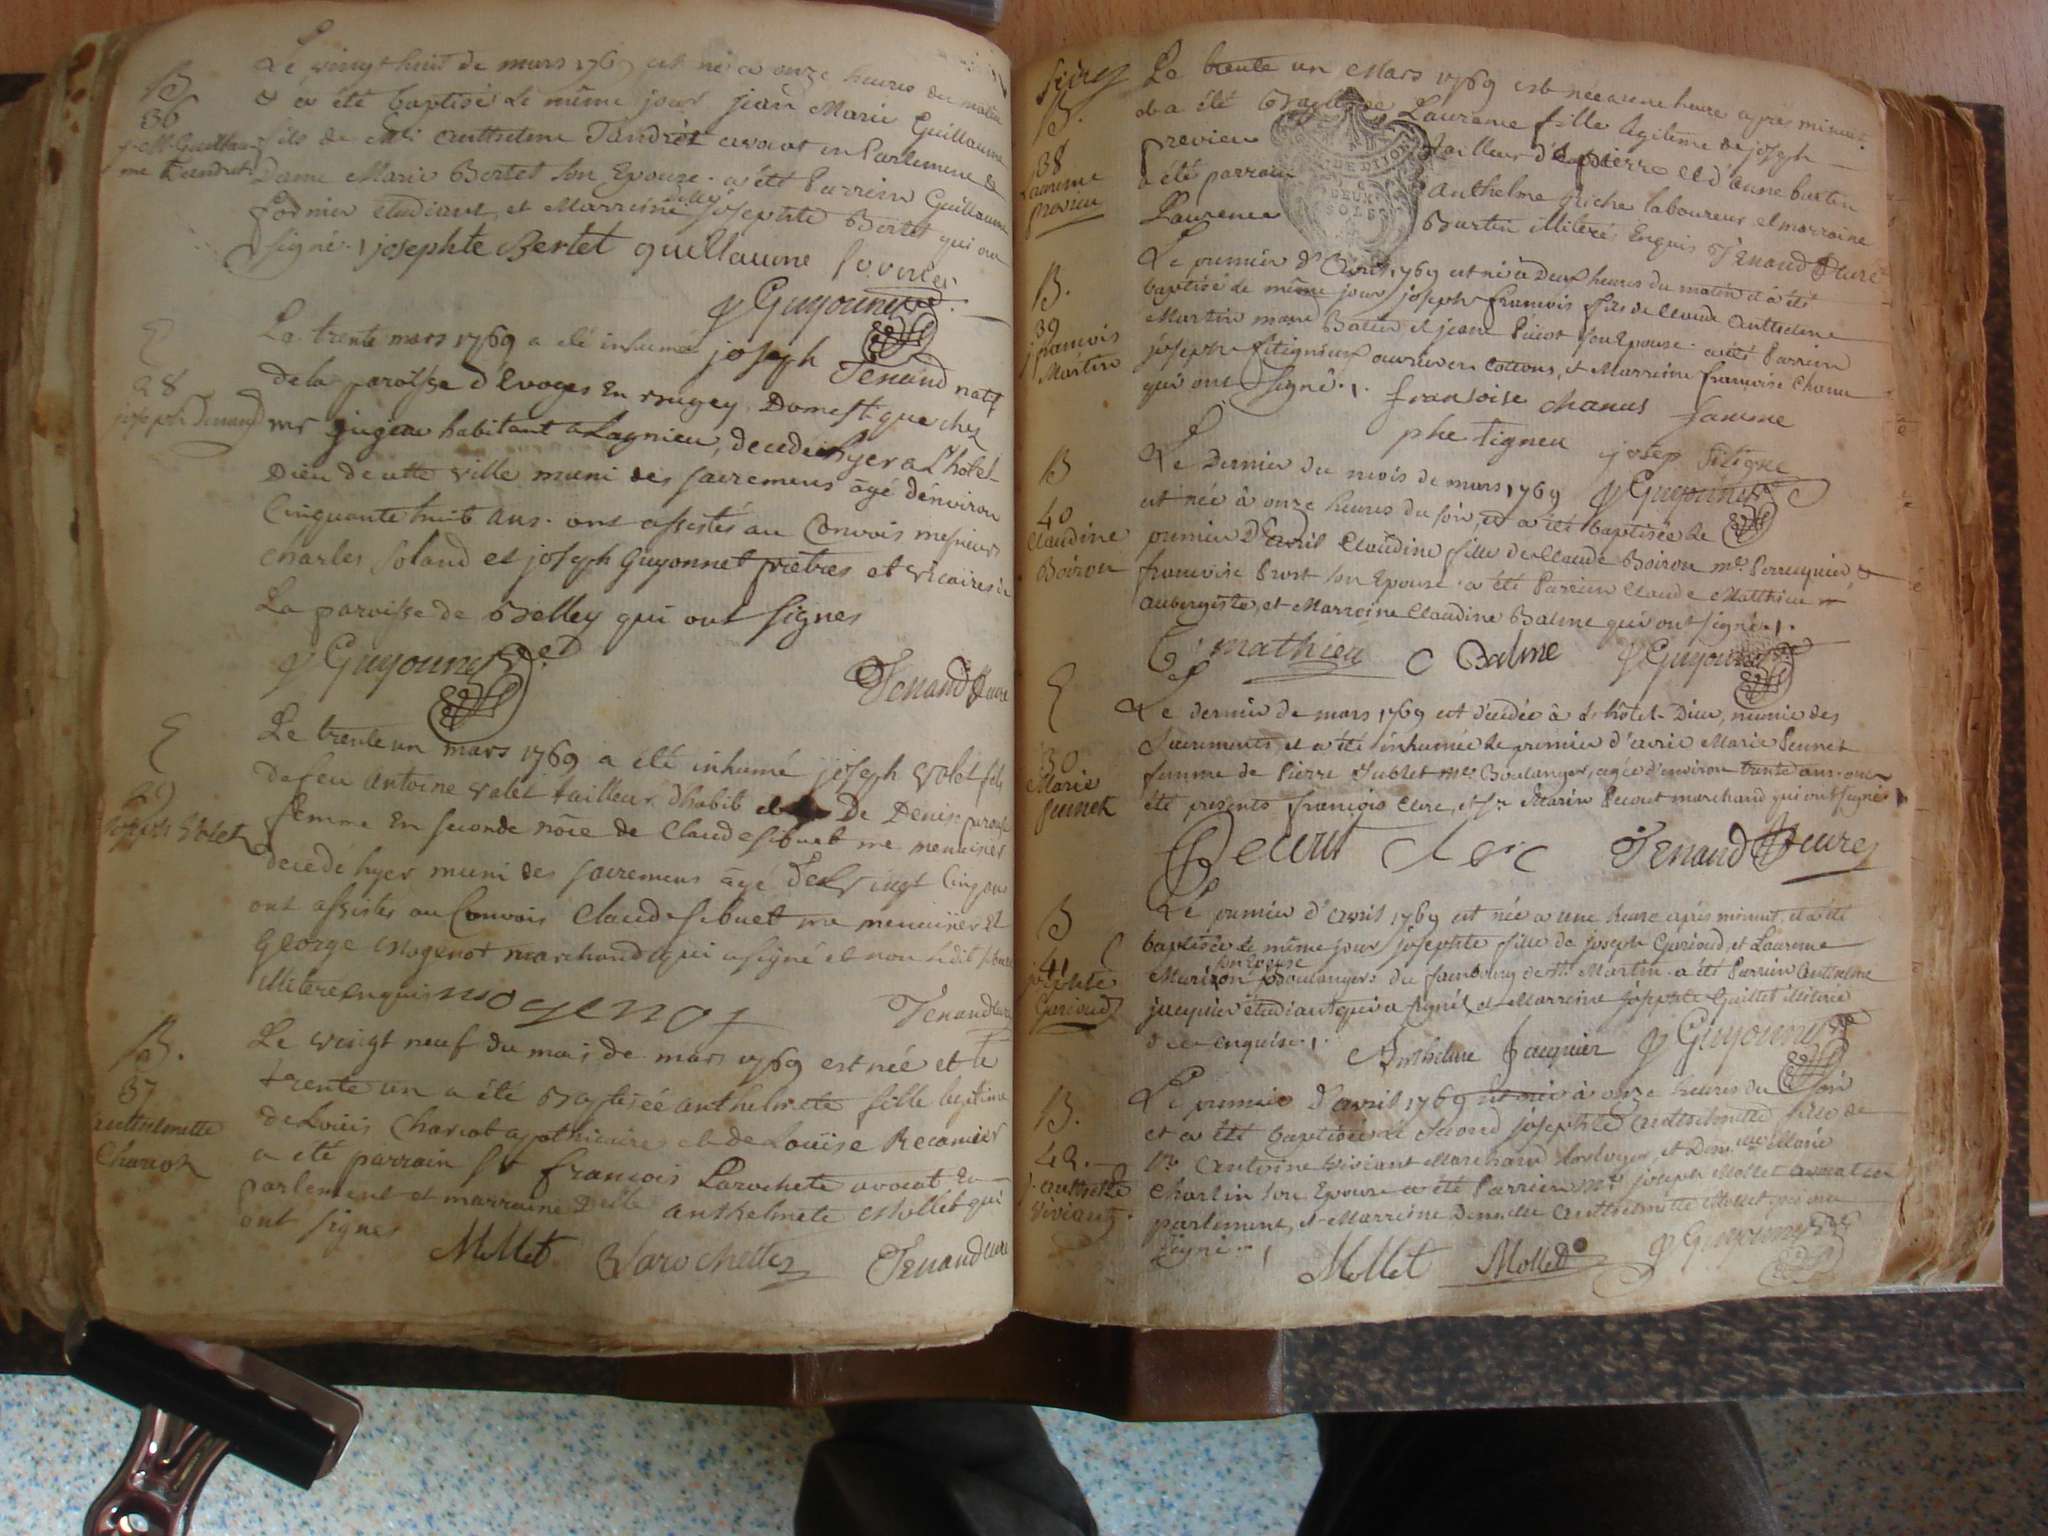 B
36
J. M. Guillau-
me Tendret
Le vingt huit de mars 1769 est né a onze heures du matin
& a été baptisé le même jour jean Marie Guillaume
fils de Mr Anthelme Tendret avocat en Parlement &
Dame Marie Bertet son Epouse. a été Parrein Guillaume
fornier étudiant, et Marreine Delle josephte Bertet qui ont
signé. josephte Bertet guillaume fornier
J Guyonnet
E
28
joseph Tenand
Le trente mars 1769 a été inhumé joseph Tenand natif
de la paroisse d'Evoges En Bugey, Domestique chez
mr habitant a Lagnieu, decedé hyer a L'hotel
Dieu de cette ville muni des sacremens âgé d'environ
Cinquante huit ans. ont assistés au Convois messieurs
charles Soland et joseph Guyonnet prêtres et vicaires de
La paroisse de Belley qui ont signes
J Guyonnet Tenand Curé
E
29
joseph Volet
Le trente un mars 1769 a été inhumé joseph Volet fils
de feu Antoine Volet tailleur d'habit et De Denise
femme En seconde nôce de Claude sibuet me menuisier
decedé hyer muni des sacremens âgé De Vingt Cinq ans
ont assistes au Convois Claude sibuet me menuisier et
George Mogenot marchand qui a signé et non ledit sibuet
illiteré enquis mogenot Tenand Curé
B.
37
anthelmette
Charcot
Le vingt neuf du mois de mars 1769 est née et le
trente un a été Baptisée anthelmete fille legitime
de Louis Charcot apothicaire et de Louïse Recamier
a été parrain Sr françois Larochete avocat En
parlement et marraine Delle anthelmete Mollet qui
ont signes
Mollet Larochette Tenand Curé
B.
38
Laurence
previeu
Le trente un Mars 1769 est née a une heure apres minuit
et a été Baptisée Laurence fille légitime de joseph
previeu tailleur d'habit et d'anne burtin
a été parrain Anthelme Riche laboureur et marraine
Laurence Burtin illiteré Enquis Tenand Curé
DEUX
SOLS
B.
39
j françois
Martin
Le premier d'Avril 1769 est né à Deux heures du matin et a été
baptisé le même jour joseph françois fils de Claude Anthelme
Martin et jeane son Epouse. a été Parrein
joseph fitigneux ouvrier en Cottons, et Marreine françoise Chanu
qui ont signé. fransoise chanus famme
phe tigneu josep fitigne
J Guyonnet
B
40
Claudine
Boiron
Le Dernier du mois de mars 1769
est née à onze heures du soir, et a été baptisée le
premier D'avril Claudine fille de Claude Boiron me Perruquier &
francoise Prost son Epouse. a été Parrein Claude Matthieu
aubergiste, et Marreine Claudine Balme qui ont signé.
C mathieu C Balme J Guyonnet
E
30
Marie
peinet
Le dernier de mars 1769 est décedée à L'hôtel-Dieu, munie des
Sacrements, et a été inhumée le premier d'avril Marie Peinet
femme de Pierre Sublet me Boulanger, agée d'environ trente ans. ont
été présents françois Clerc, et Sr Marin Pecout marchand qui ont signé.
Pecout Clerc Tenand Curé
B
41
josephte
Garioud
Le premier d'avril 1769 est née a une heure après minuit, et a été
baptisée le même jour josephte fille de joseph Garioud, et Laurence
son Epouse
Boulangers du faubourg de St Martin. a été Parrein Anthelme
jacquier étudiant qui a signé, et Marreine josephte Guillet illiterée
de ce enquise.
Anthelme Jacquier J Guyonnet
B.
42.
j. anthelte
Viviant
Le premier D'avril 1769 est née à onze heures du soir
et a été baptisée le second josephte Anthelmette fille de
Sr Antoine Viviant Marchand horloger, et Demlle Marie
Charlin son Epouse a été Parrein Mr joseph Mollet avocat en
parlement, et Marreine Demelle Anthelmette Mollet qui ont
signé.
Mollet Mollet J Guyonnet